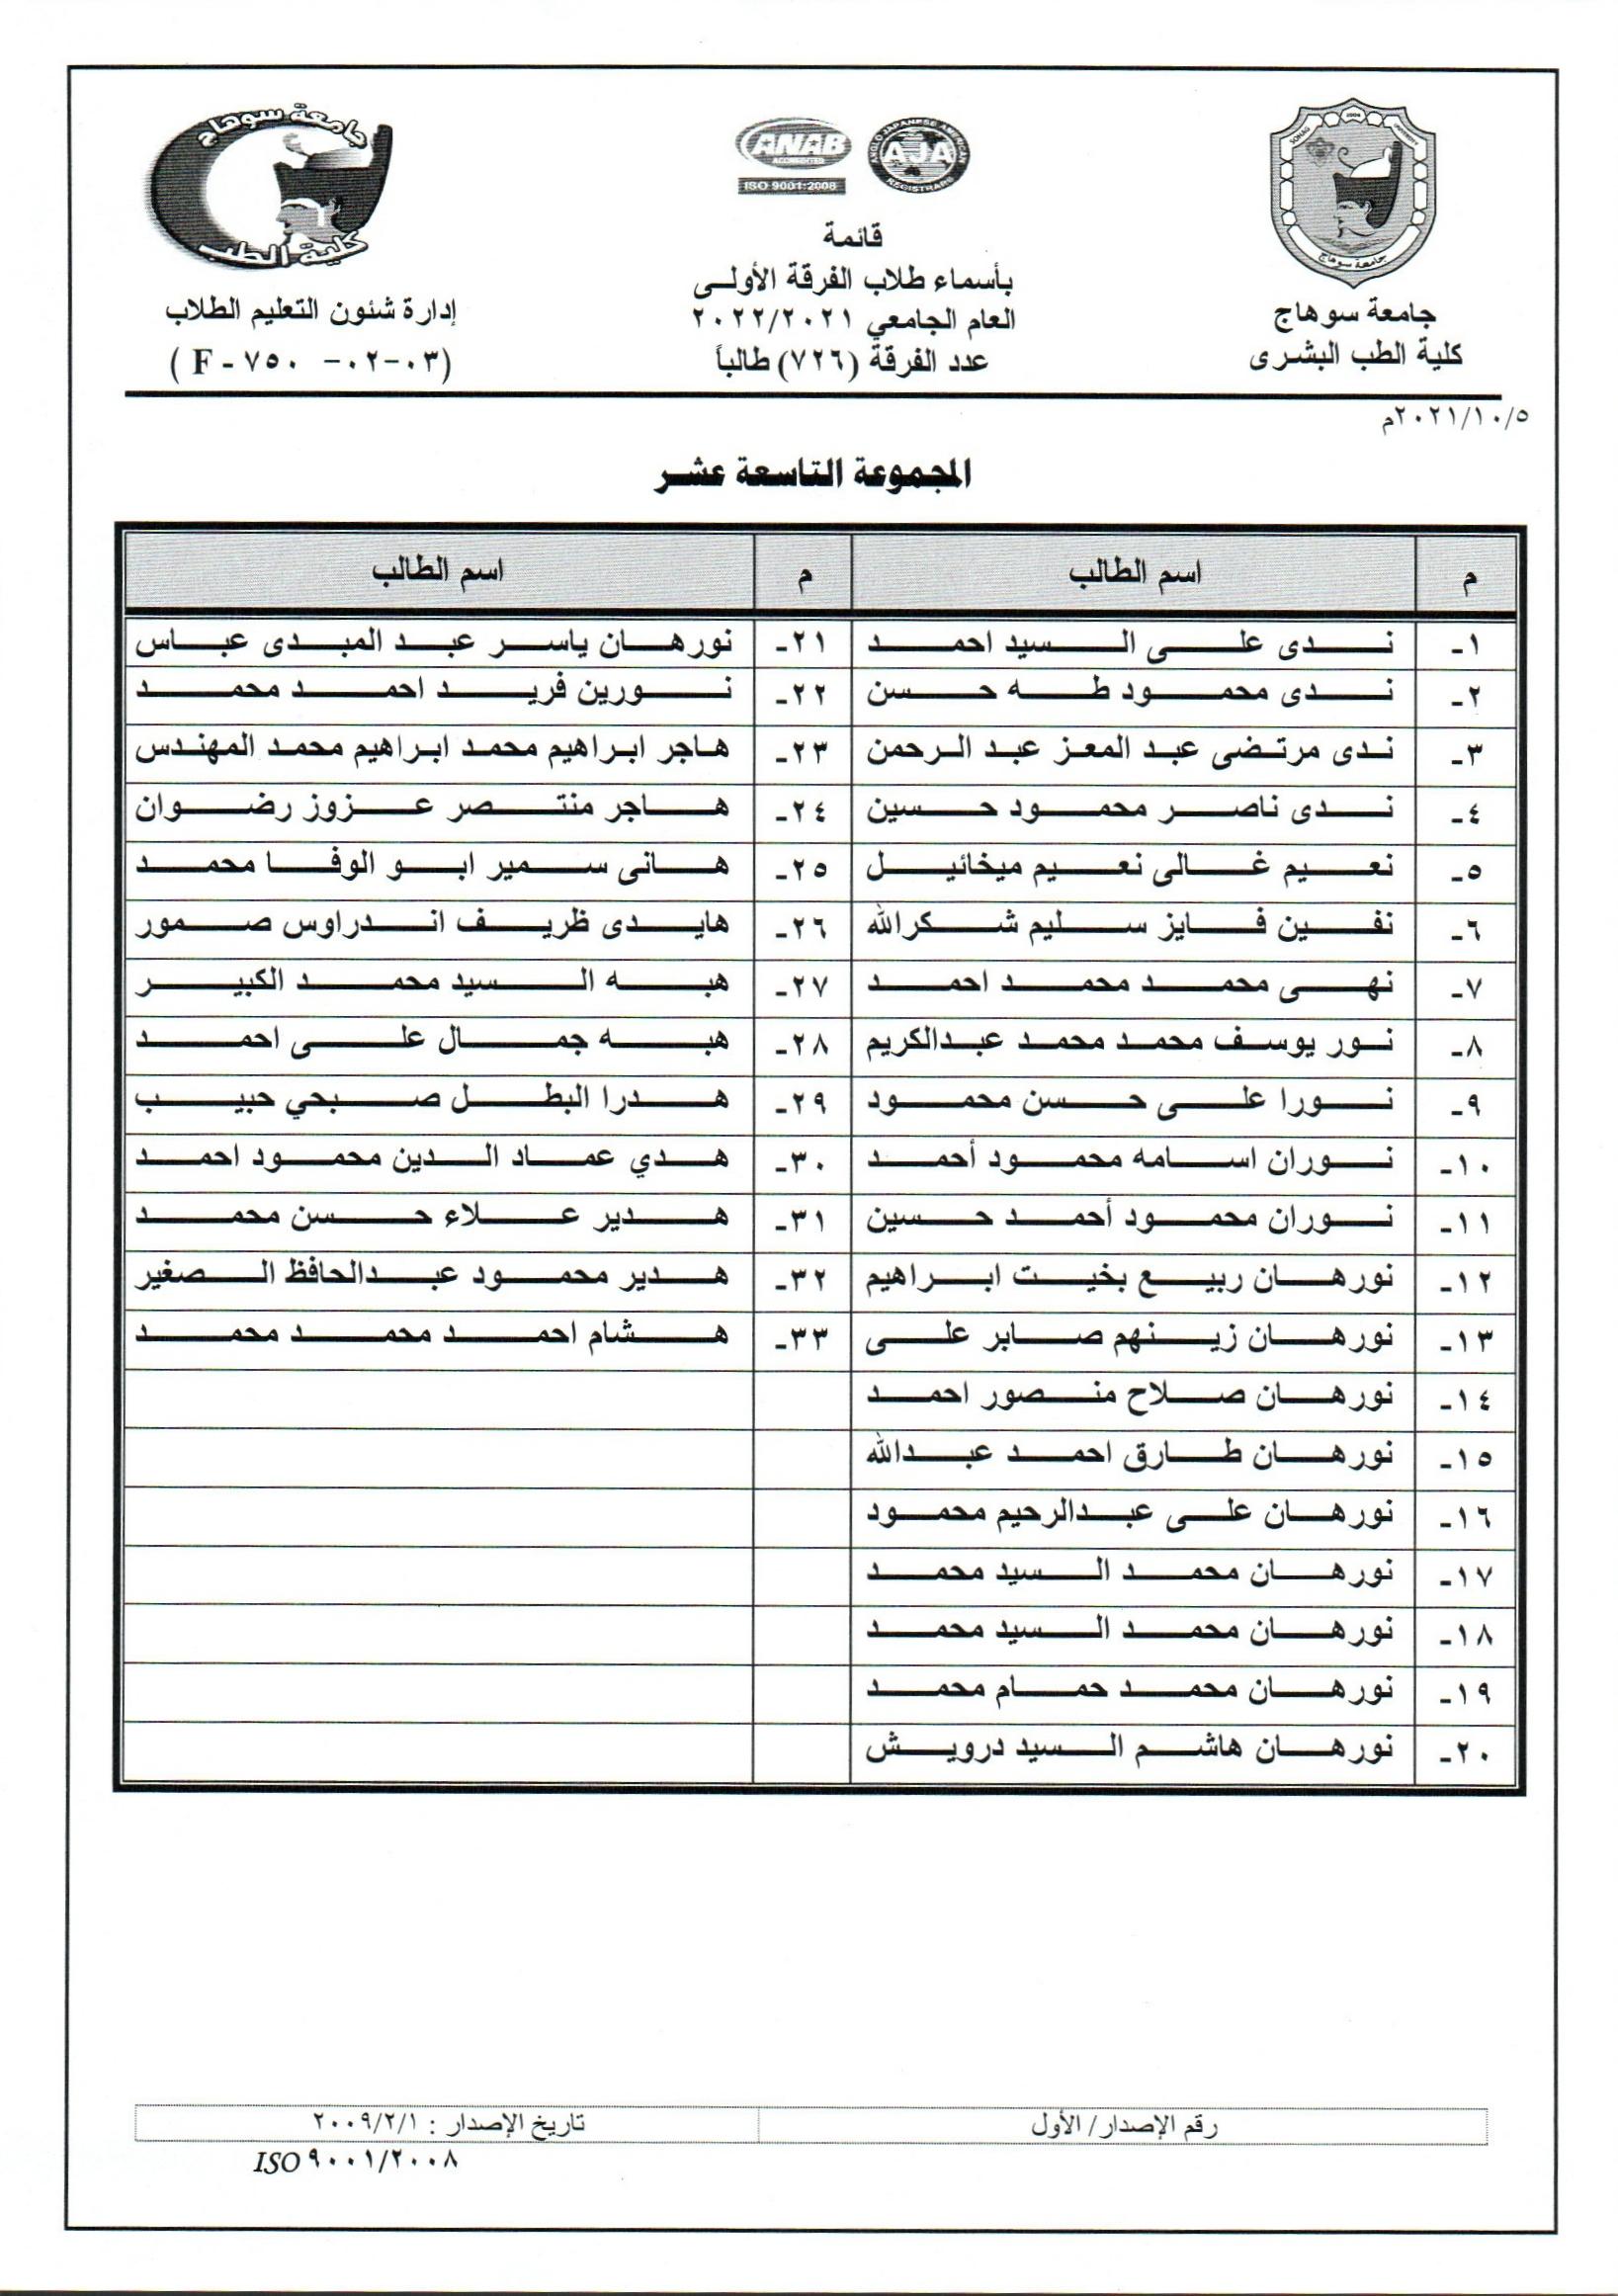 جامعة سوهاج
كلية الطب البشرى
SOHAG 2006 UNIVERSITY
جامعة سوهاج
ANAB
ACCREDITED
ISO 9001:2008
AJA
ANGLO JAPANESE AMERICAN
REGISTRARS
قائمة
بأسماء طلاب الفرقة الأولى
العام الجامعي ٢٠٢٢/٢٠٢١
عدد الفرقة (٧٢٦) طالباً
جامعة سوهاج
كلية الطب
إدارة شئون التعليم الطلاب
( F - ٧٥٠ -٠٢-٠٣)
٢٠٢١/١٠/٥م
المجموعة التاسعة عشر
م اسم الطالب م اسم الطالب
١- ندى على السيد احمد ٢١- نورهان ياسر عبد المبدى عباس
٢- ندى محمود طه حسن ٢٢- نورين فريد احمد محمد
٣- ندى مرتضى عبد المعز عبد الرحمن ٢٣- هاجر ابراهيم محمد ابراهيم محمد المهندس
٤- ندى ناصر محمود حسين ٢٤- هاجر منتصر عزوز رضوان
٥- نعيم غالى نعيم ميخائيل ٢٥- هانى سمير ابو الوفا محمد
٦- نفين فايز سليم شكرالله ٢٦- هايدى ظريف اندراوس صمور
٧- نهى محمد محمد احمد ٢٧- هبه السيد محمد الكبير
٨- نور يوسف محمد محمد عبدالكريم ٢٨- هبه جمال على احمد
٩- نورا على حسن محمود ٢٩- هدرا البطل صبحي حبيب
١٠- نوران اسامه محمود أحمد ٣٠- هدي عماد الدين محمود احمد
١١- نوران محمود أحمد حسين ٣١- هدير علاء حسن محمد
١٢- نورهان ربيع بخيت ابراهيم ٣٢- هدير محمود عبدالحافظ الصغير
١٣- نورهان زينهم صابر على ٣٣- هشام احمد محمد محمد
١٤- نورهان صلاح منصور احمد
١٥- نورهان طارق احمد عبدالله
١٦- نورهان على عبدالرحيم محمود
١٧- نورهان محمد السيد محمد
١٨- نورهان محمد السيد محمد
١٩- نورهان محمد حمام محمد
٢٠- نورهان هاشم السيد درويش
رقم الإصدار/ الأول تاريخ الإصدار : ٢٠٠٩/٢/١
ISO ٩٠٠١/٢٠٠٨